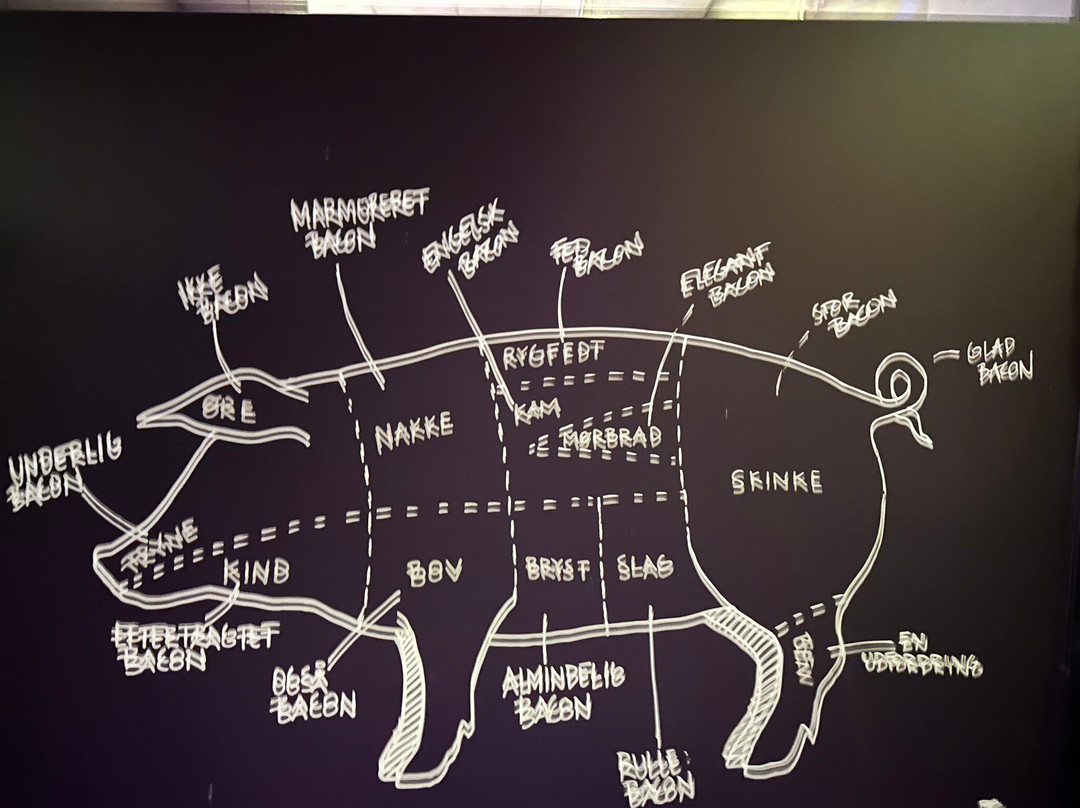 MARMORERET
BACON
ENGELSK
BACON
FED
BACON
ELEGANT
BACON
IKKE
BACON
STOR
BACON
GLAD
BACON
RYGFEDT
ØRE
KAM
NAKKE
MØRBRAD
UNDERLIG
BACON
SKINKE
TRYNE
KIND
BOV
BRYST
SLAG
EFTERTRAGTET
BACON
BEN
EN
UDFORDRING
OGSÅ
BACON
ALMINDELIG
BACON
RULLE
BACON